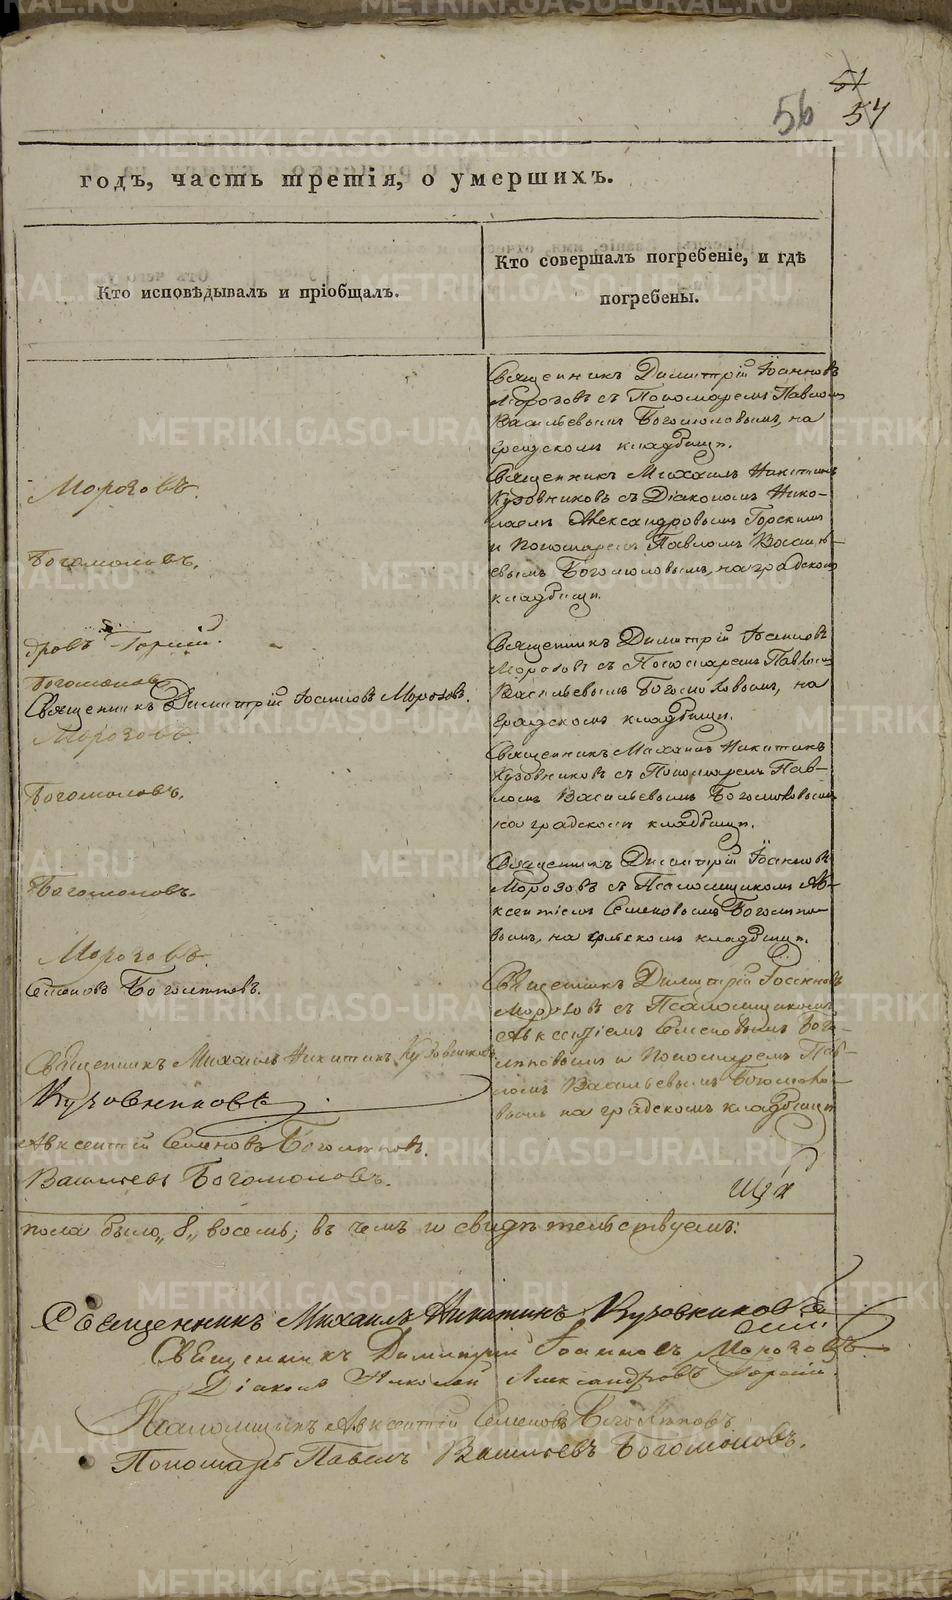 51
56 57
годъ, часть третія, о умершихъ.
Кто исповѣдывалъ и пріобщалъ.
Кто совершалъ погребеніе, и гдѣ
погребены.
Священникъ Димитрій Іоанновъ
Морозовъ съ Пономаремъ Павломъ
Васильевымъ Богомоловымъ, на
градскомъ кладбищѣ.
Священникъ Михаилъ Никитинъ
Кузовниковъ съ Діакономъ Нико-
лаемъ Александровымъ Горскимъ
и Пономаремъ Павломъ Василь-
евымъ Богомоловымъ, на градскомъ
кладбищѣ.
Священникъ Димитрій Іоанновъ
Морозовъ съ Пономаремъ Павломъ
Васильевымъ Богомоловымъ, на
градскомъ кладбищѣ.
Священникъ Михаилъ Никитинъ
Кузовниковъ съ Пономаремъ Пав-
ломъ Васильевымъ Богомоловымъ
на градскомъ кладбищѣ.
Священникъ Димитрій Іоанновъ
Морозовъ съ Псаломщикомъ Ав-
ксентіемъ Семеновымъ Боголѣпо-
вымъ, на градскомъ кладбищѣ.
Священникъ Димитрій Іоанновъ
Морозовъ съ Псаломщикомъ
Авксентіемъ Семеновымъ Бого-
лѣповымъ и Пономаремъ Пав-
ломъ Васильевымъ Богомоло-
вымъ на градскомъ кладбищѣ
Морозовъ.
Богомоловъ.
дровъ Горскій.
Богомоловъ.
Священникъ Димитрій Іоанновъ Морозовъ.
Морозовъ.
Богомоловъ.
Богомоловъ.
Морозовъ.
Семеновъ Боголѣповъ.
Священникъ Михаилъ Никитинъ Кузовниковъ
Кузовниковъ
Авксентій Семеновъ Боголѣповъ.
Васильевъ Богомоловъ.
пола было „8„ восемь; въ чемъ и свидѣтельствуемъ:
Священникъ Михаилъ Никитинъ Кузовниковъ
Священникъ Димитрій Іоанновъ Морозовъ
Діаконъ Николай Александровъ Горскій.
Псаломщикъ Авксентій Семеновъ Боголѣповъ
Пономарь Павелъ Васильевъ Богомоловъ.
METRIKI.GASO-URAL.RU